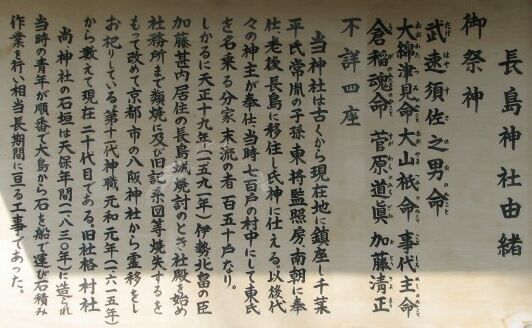 長島神社由緒
御祭神
武速須佐之男命
大綿津見命 大山祇命 事代主命
倉稲魂命 菅原道眞 加藤清正
不詳四座
当神社は古くから現在地に鎮座し千葉
平氏常胤の子孫東将監照房南朝に奉
仕老後長島に移住し氏神に仕える、以後代
々の神主が奉仕当時七百戸の村中にして東氏
を名乗る分家末流の者一百五十戸なり。
しかるに天正十九年(一五九一年)伊勢北畠の臣
加藤甚内居住の長島城焼討のとき社殿を始め
社務所まで類焼に及び旧記系図等焼失するを
もって改めて京都市の八阪神社から霊移をし
お祀りしている。第十一代神職元和元年(一六一五年)
から数えて現在二十代目である。旧社格 村社
尚神社の石垣は天保年間(一八三〇年)に造られ
当時の青年が順番で大島から石を船で運び石積み
作業を行い相当長期間に亘る工事であった。